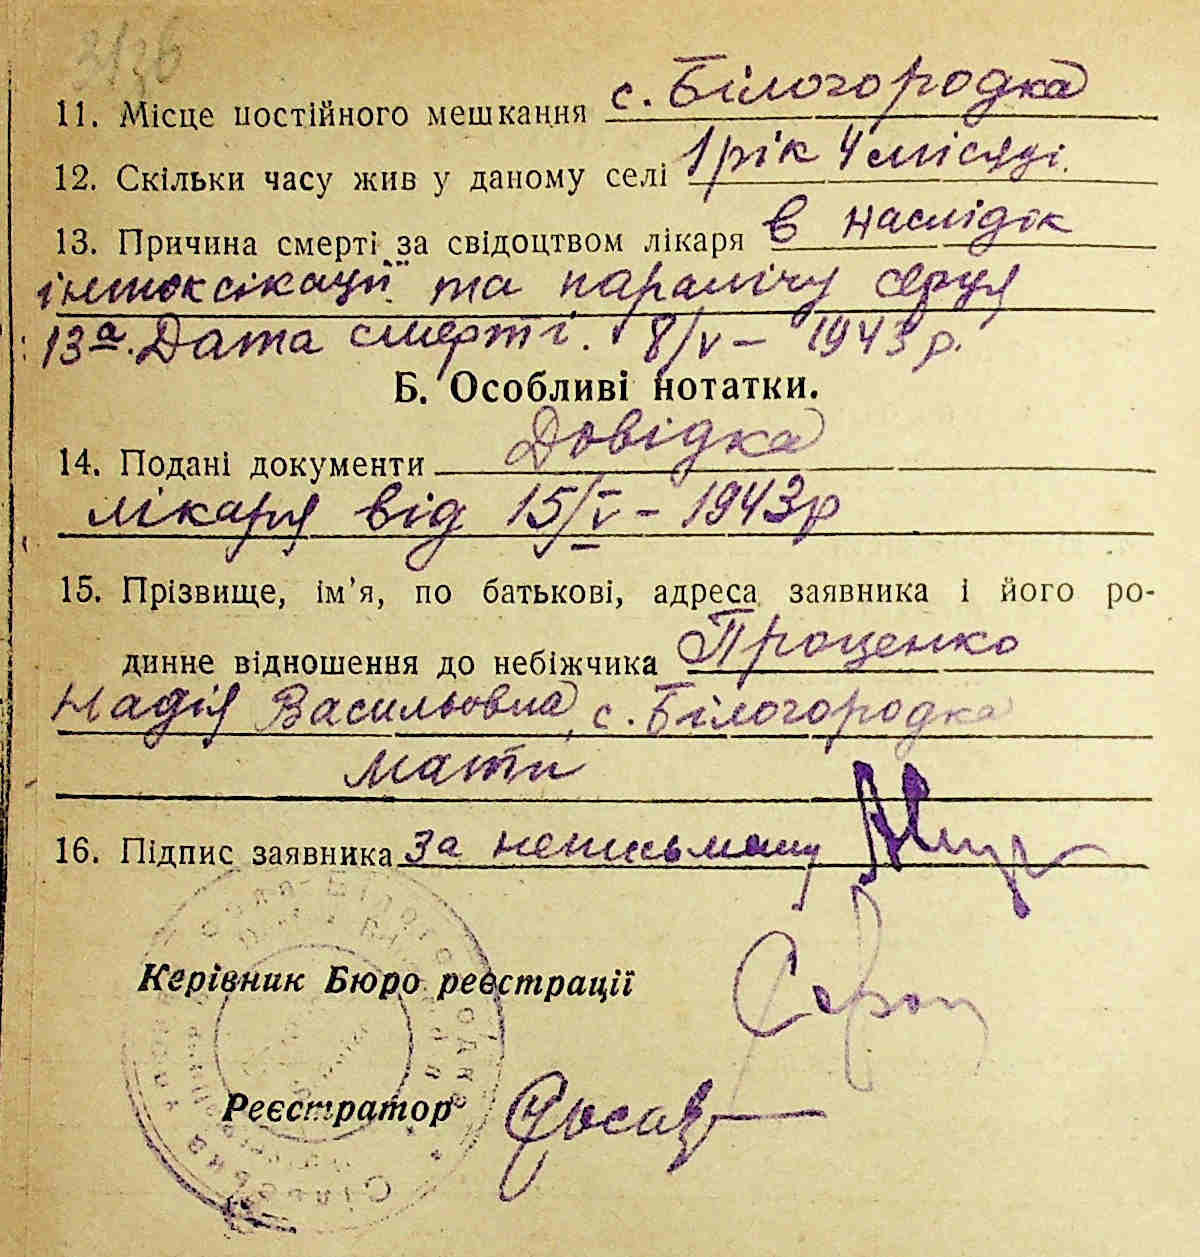 11. Місце постійного мешкання с. Білогородка
12. Скільки часу жив у даному селі 1 рік 4 місяці.
13. Причина смерті за свідоцтвом лікаря в наслідок
інтоксікації та паралічу серця
13а. Дата смерті. 8/V – 1943 р.
Б. Особливі нотатки.
14. Подані документи Довідка
лікаря від 15/V – 1943 р
15. Прізвище, ім’я, по батькові, адреса заявника і його ро-
динне відношення до небіжчика Проценко
Надія Васильовна, с. Білогородка
мати
16. Підпис заявника За неписьмену
Керівник Бюро реєстрації
Реєстратор